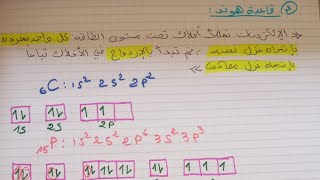 قاعدة هوند :
الإلكترونات تملأ أفلاك تحت مستوى الطاقة كل واحد بمفرده
باتجاه غزل نفسه ، ثم تبدأ بالازدواج في الأفلاك تباعا
باتجاه غزل معاكس
₆C : 1s² 2s² 2p²
1s 2s 2p
₁₅P : 1s² 2s² 2p⁶ 3s² 3p³